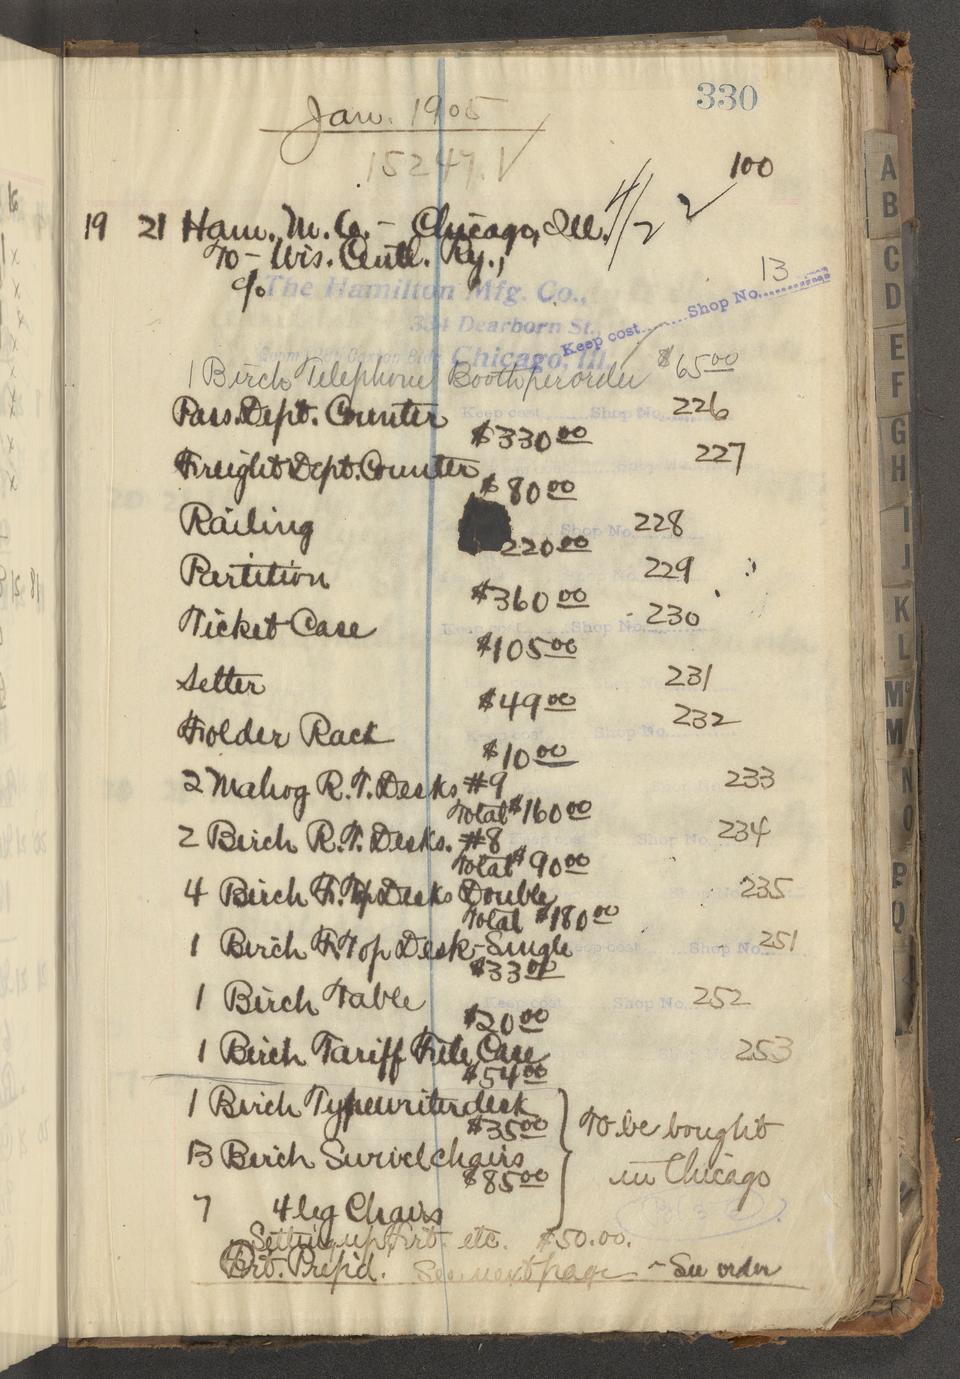 330
Jan. 1905
15247. V
100
19 21 Ham. M. Co. - Chicago, Ill. 4/22
To - Wis. Centl. Ry.,
c/o The Hamilton Mfg. Co.,
334 Dearborn St.,
Chicago, Ill.
Keep cost........ Shop No. 13
1 Birch Telephone Booth per order $65 00
Pass. Dept. Counter 226
$330 00
Freight Dept. Counter 227
$80 00
Railing 228
220 00
Partition 229
$360 00
Ticket Case 230
$105 00
Setter 231
$49 00
Folder Rack 232
$10 00
2 Mahog R. T. Desks #9 233
Total $160 00
2 Birch R. T. Desks. #8 234
Total $90 00
4 Birch F. Top Desks Double 235
Total $180 00
1 Birch F. Top Desk - Single 251
$33 00
1 Birch Table 252
$20 00
1 Birch Tariff File Case 253
$54 00
1 Birch Typewriter desk
$35 00
To be bought
13 Birch Swivel chairs
$85 00
in Chicago
7 4 leg Chairs
Setting up, Frt. etc. $50.00.
Frt. Prep'd. See next page - See order
A
B
C
D
E
F
G
H
I
J
K
L
Mc
M
N
O
P
Q